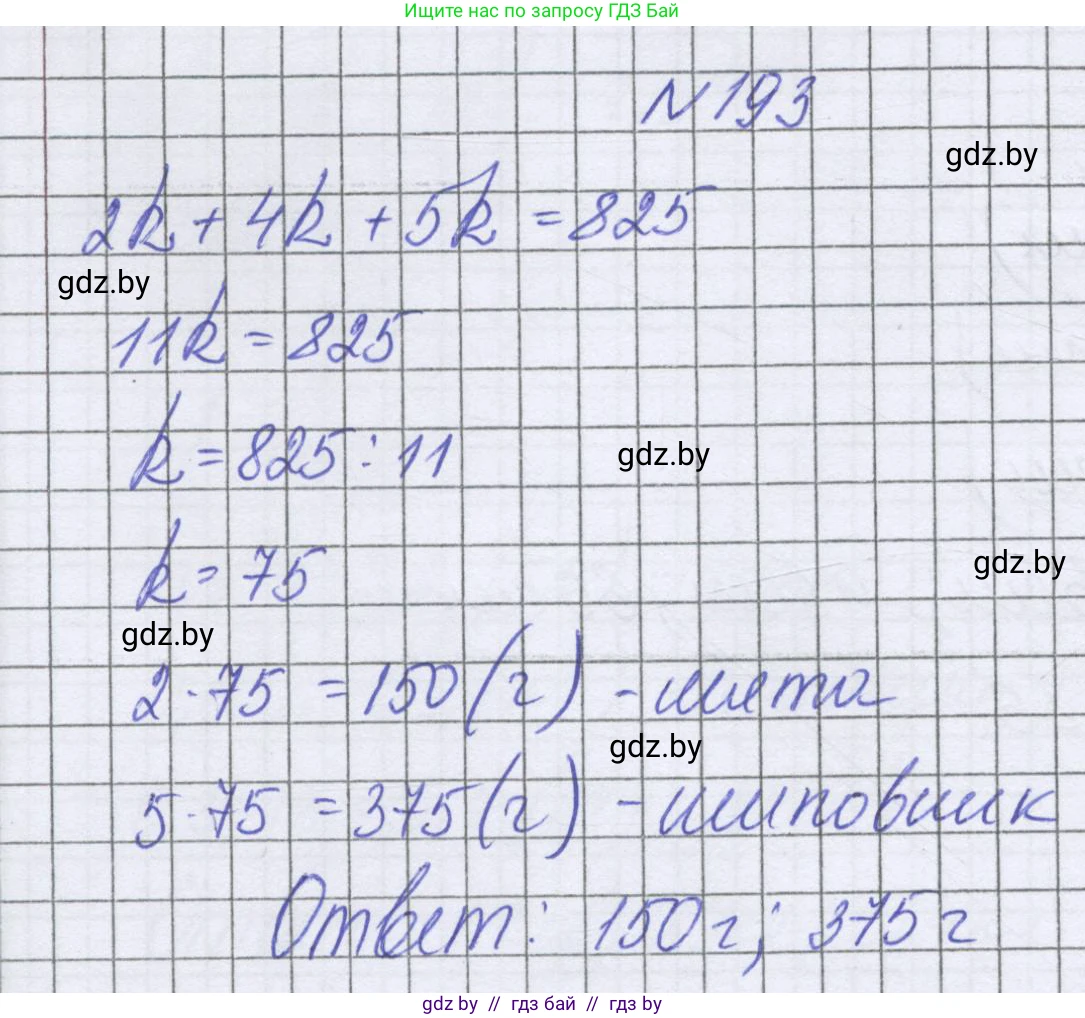 Ищите нас по запросу ГДЗ Бай
N 193
gdz.by
2k + 4k + 5k = 825
gdz.by
11k = 825
k = 825 : 11
gdz.by
k = 75
gdz.by
gdz.by
2 · 75 = 150 (г) - мята
gdz.by
5 · 75 = 375 (г) - шиповник
Ответ: 150 г; 375 г
gdz by // гдз бай // гдз by